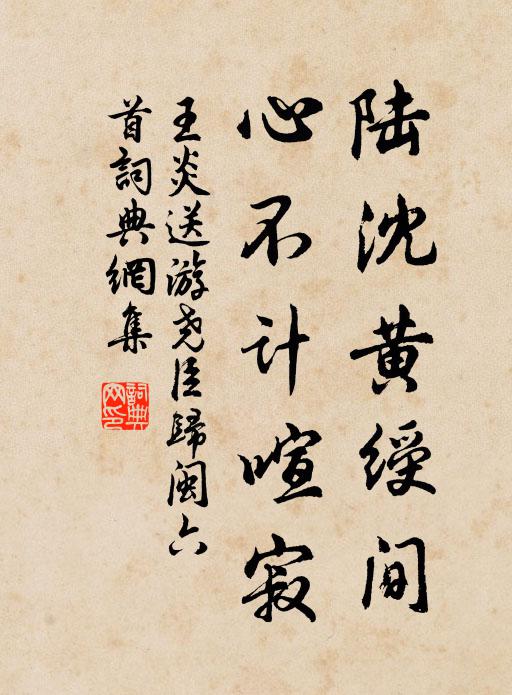 陆沈黄绶间
心不计喧寂
王炎送游尧臣歸闽六
首詞典網集
詞典
网印